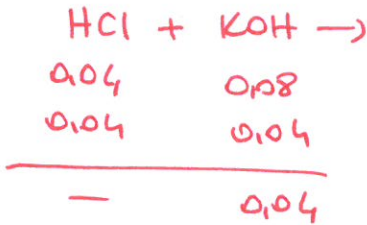 HCl + KOH →
0,04 0,08
0,04 0,04
— 0,04